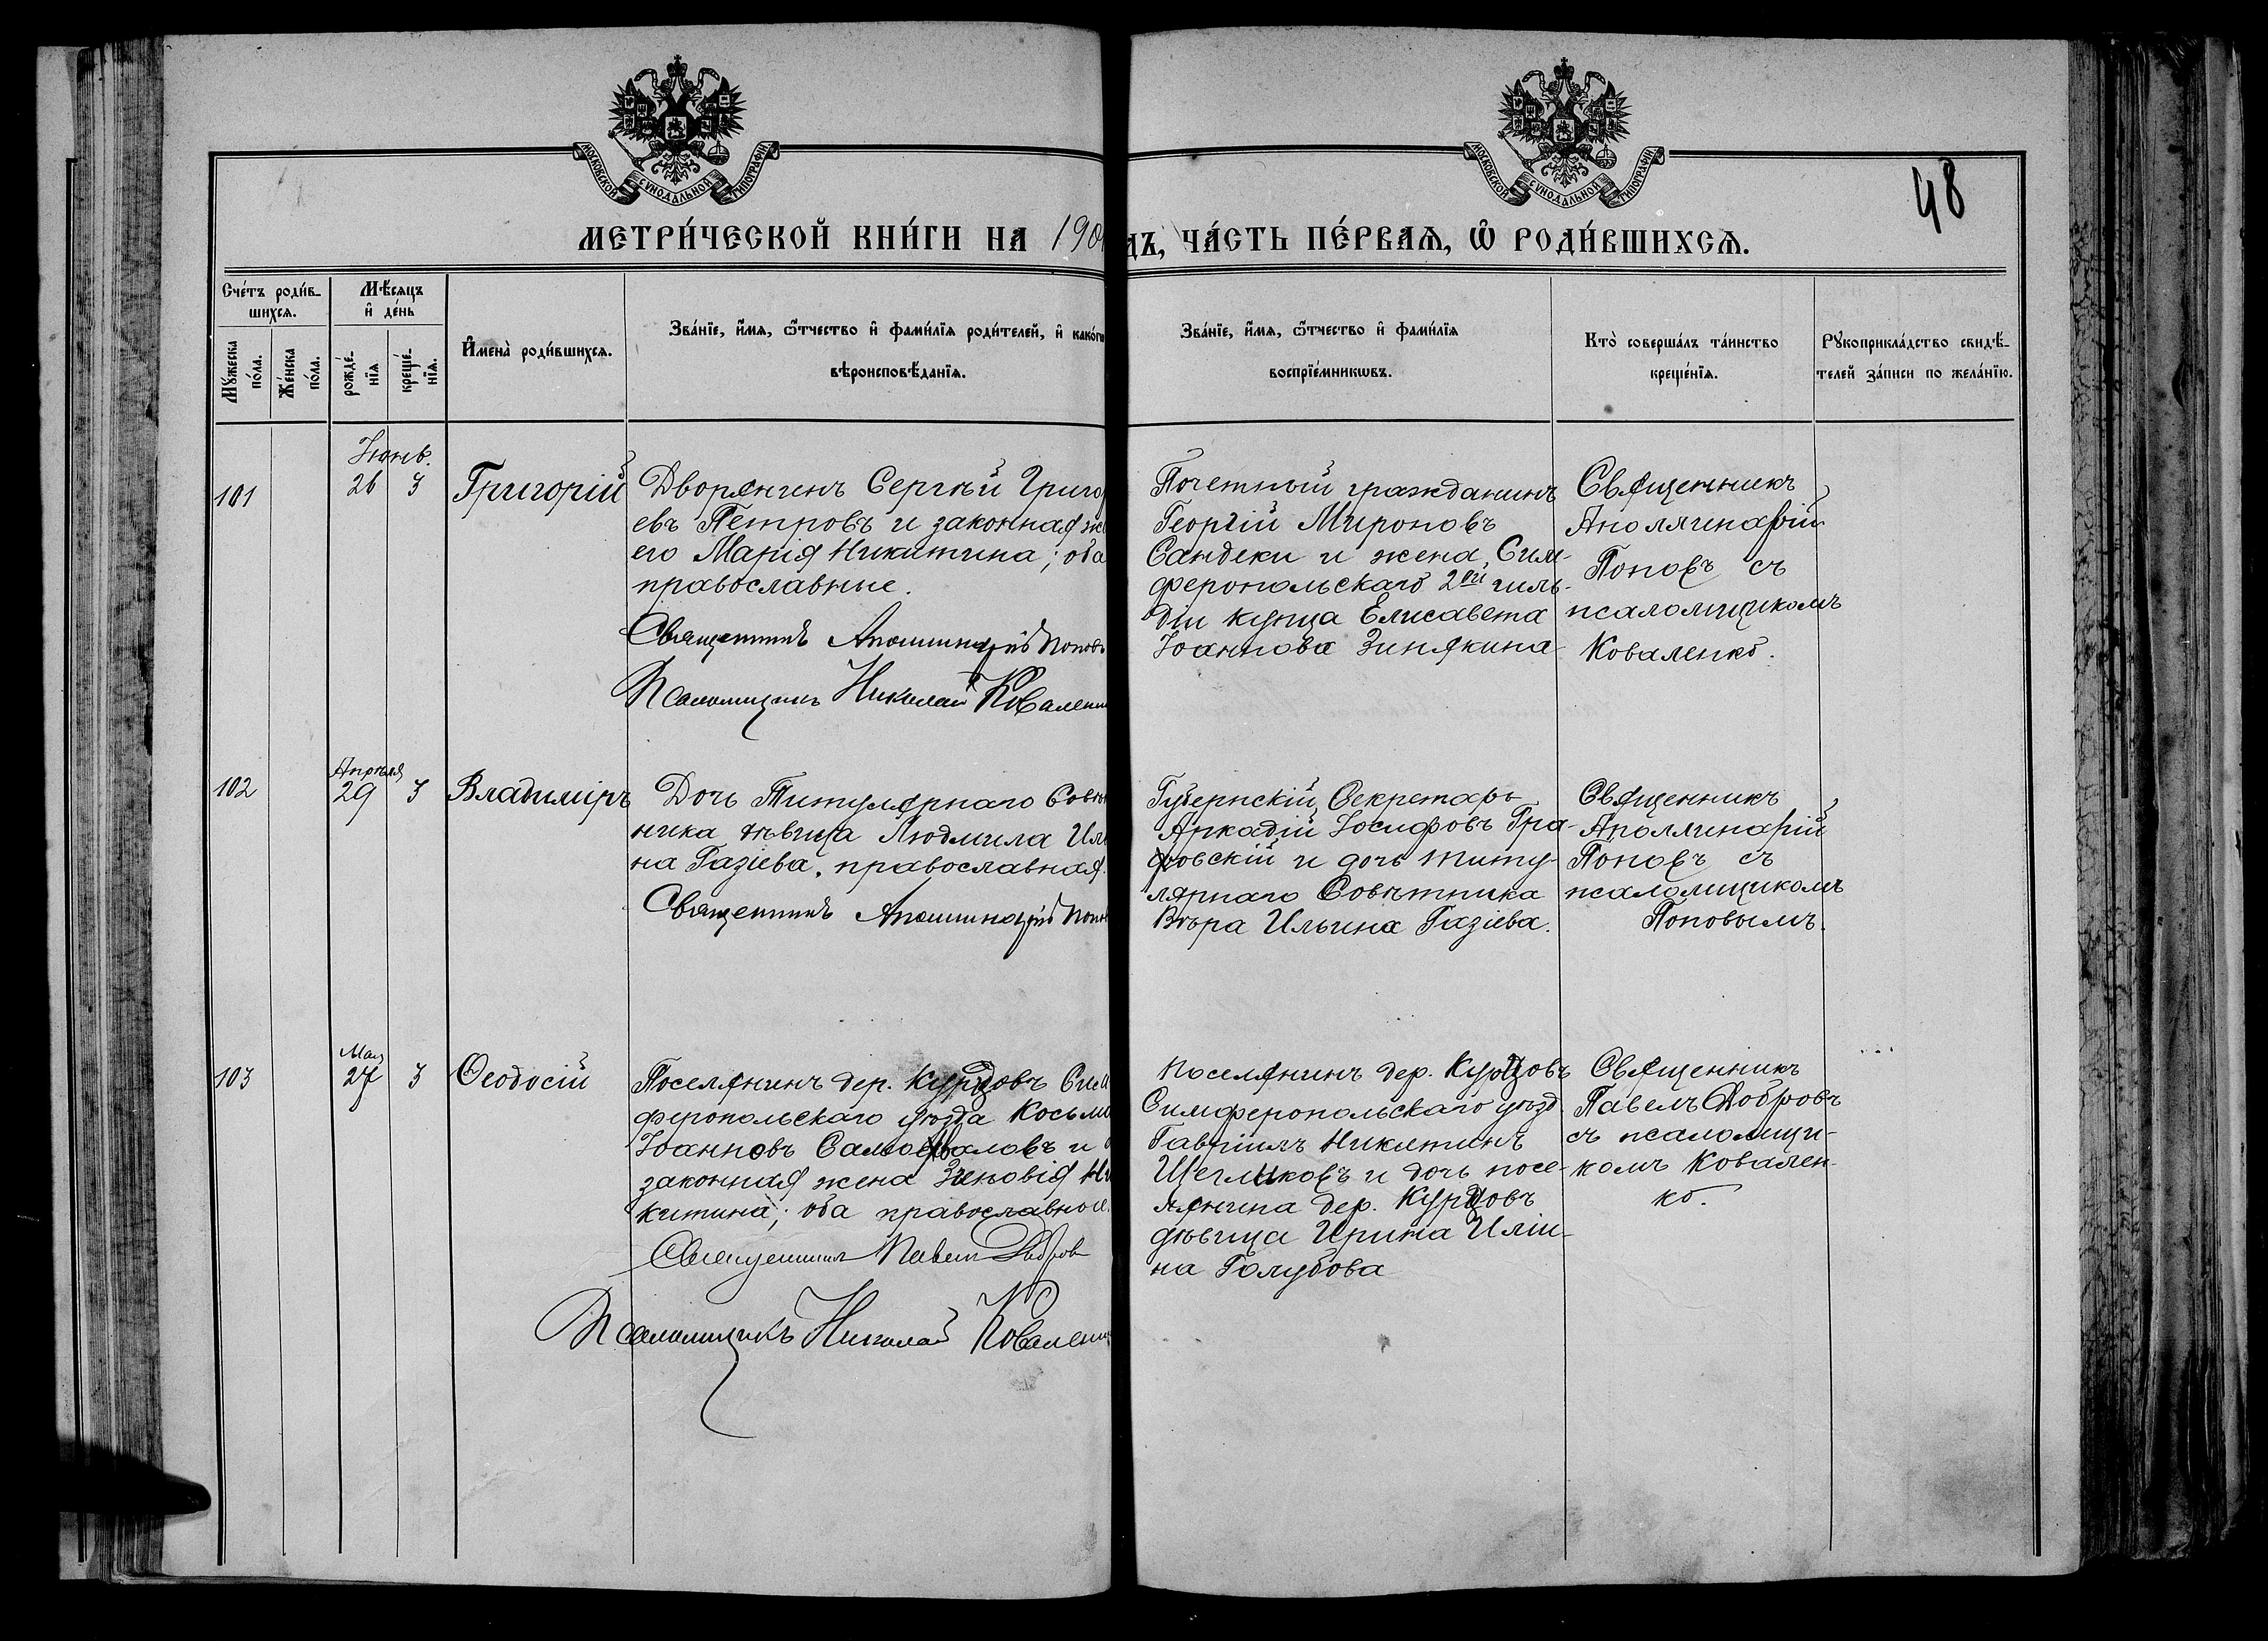 МОСКОВСКОЙ СѴНОДАЛЬНОЙ ТИПОГРАФІИ
МОСКОВСКОЙ СѴНОДАЛЬНОЙ ТИПОГРАФІИ
48
МЕТРИ́ЧЕСКОЙ КНИ́ГИ НА 190
ДЪ, ЧА́СТЬ ПЕ́РВАѦ, Ѡ РОДИ́ВШИХСѦ.
Счетъ родив-
шихсѧ.
Мѣсѧцъ
и день
Мужеска
пола.
Женска
пола.
рожде-
нїѧ
креще-
нїѧ.
Имена родившихсѧ.
Званїе, имѧ, ѿчество и фамилїѧ родителей, и како
вѣроисповѣданїѧ.
Званїе, имѧ, ѿчество и фамилїѧ
воспрїемникѡвъ.
Кто совершалъ таинство
крещенїѧ.
Рукоприкладство свидѣ-
телей записи по желанїю.
101
Июнь.
26 3
Григорій
Дворянинъ Сергѣй Григо
евъ Петровъ и законная же
его Марія Никитина; оба
православные.
Священникъ Аполлинарій Поповъ
Псаломщикъ Николай Ковален
Почетный гражданинъ
Георгій Мироновъ
Сандеки и жена Сим-
феропольскаго 2ой гиль-
діи купца Елисавета
Іоаннова Зинякина
Священникъ
Аполлинарій
Поповъ съ
псаломщикомъ
Коваленко.
102
Апрѣля
29 3
Владиміръ
Дочь Титулярнаго Совѣт
ника дѣвица Людмила Иль
на Газіева, православная.
Священникъ Аполлинарій Попов
Губернскій Секретарь
Аркадій Іосифовъ Гра-
фовскій и дочь титу-
лярнаго Совѣтника
Вѣра Ильина Газіева.
Священникъ
Аполлинарій
Поповъ съ
псаломщикомъ
Поповымъ.
103
Мая
27 3
Ѳеодосій
Поселянинъ дер. Курцовъ Сим
феропольскаго уѣзда Косьма
Іоанновъ Самохваловъ и
законная жена Зиновія Ни
китина; оба православные.
Священникъ Павелъ Добров
Псаломщикъ Николай Ковален
Поселянинъ дер. Курцовъ
Симферопольскаго уѣзд.
Гавріилъ Никитинъ
Щегликовъ и дочь посе-
лянина дер. Курцовъ
дѣвица Ирина Иліи-
на Голубова
Священникъ
Павелъ Добровъ
съ псаломщи-
комъ Ковален-
ко.